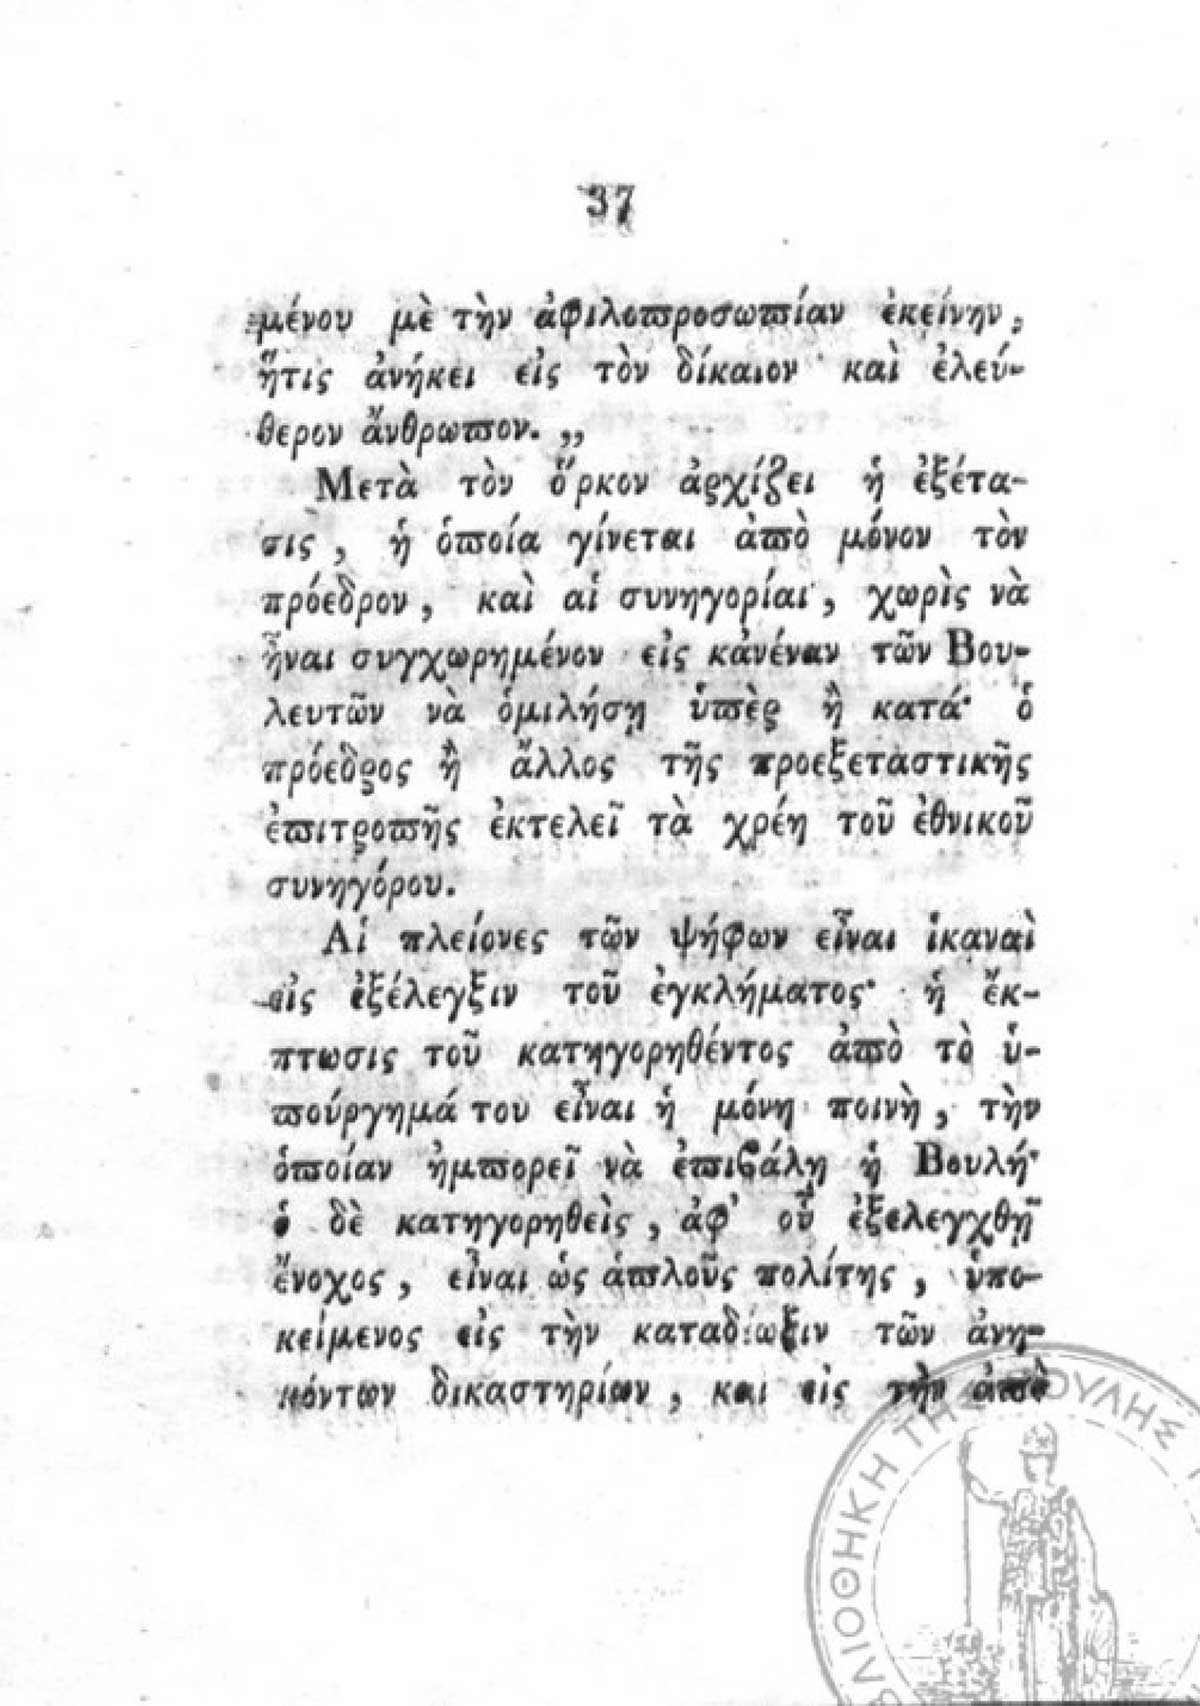 37
μένου μὲ τὴν ἀφιλοπροσωπίαν ἐκείνην,
ἥτις ἀνήκει εἰς τὸν δίκαιον καὶ ἐλεύ-
θερον ἄνθρωπον. „
Μετὰ τὸν ὅρκον ἀρχίζει ἡ ἐξέτα-
σις, ἡ ὁποία γίνεται ἀπὸ μόνον τὸν
πρόεδρον, καὶ αἱ συνηγορίαι, χωρὶς νὰ
ἦναι συγχωρημένον εἰς κἀνέναν τῶν Βου-
λευτῶν νὰ ὁμιλήσῃ ὑπὲρ ἢ κατά· ὁ
πρόεδρος ἢ ἄλλος τῆς προεξεταστικῆς
ἐπιτροπῆς ἐκτελεῖ τὰ χρέη τοῦ ἐθνικοῦ
συνηγόρου.
Αἱ πλείονες τῶν ψήφων εἶναι ἱκαναὶ
εἰς ἐξέλεγξιν τοῦ ἐγκλήματος· ἡ ἔκ-
πτωσις τοῦ κατηγορηθέντος ἀπὸ τὸ ὑ-
πούργημά του εἶναι ἡ μόνη ποινὴ, τὴν
ὁποίαν ἠμπορεῖ νὰ ἐπιβάλῃ ἡ Βουλή·
ὁ δὲ κατηγορηθεὶς, ἀφ’ οὗ ἐξελεγχθῇ
ἔνοχος, εἶναι ὡς ἁπλοῦς πολίτης, ὑπο-
κείμενος εἰς τὴν καταδίωξιν τῶν ἀνη-
κόντων δικαστηρίων, καὶ εἰς τὴν ἀπὸ
ΒΛΙΟΘΗΚΗ ΤΗΣ ΒΟΥΛΗΣ